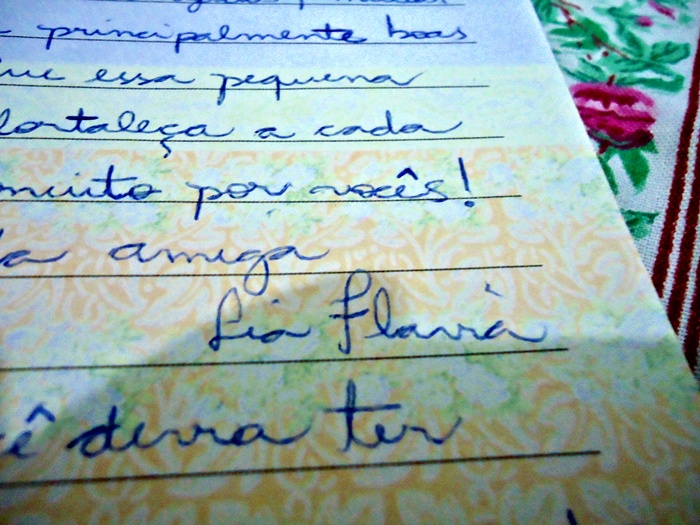 principalmente boas
que essa pequena
fortaleça a cada
muito por vocês!
da amiga
Lia Flávia
cê devia ter